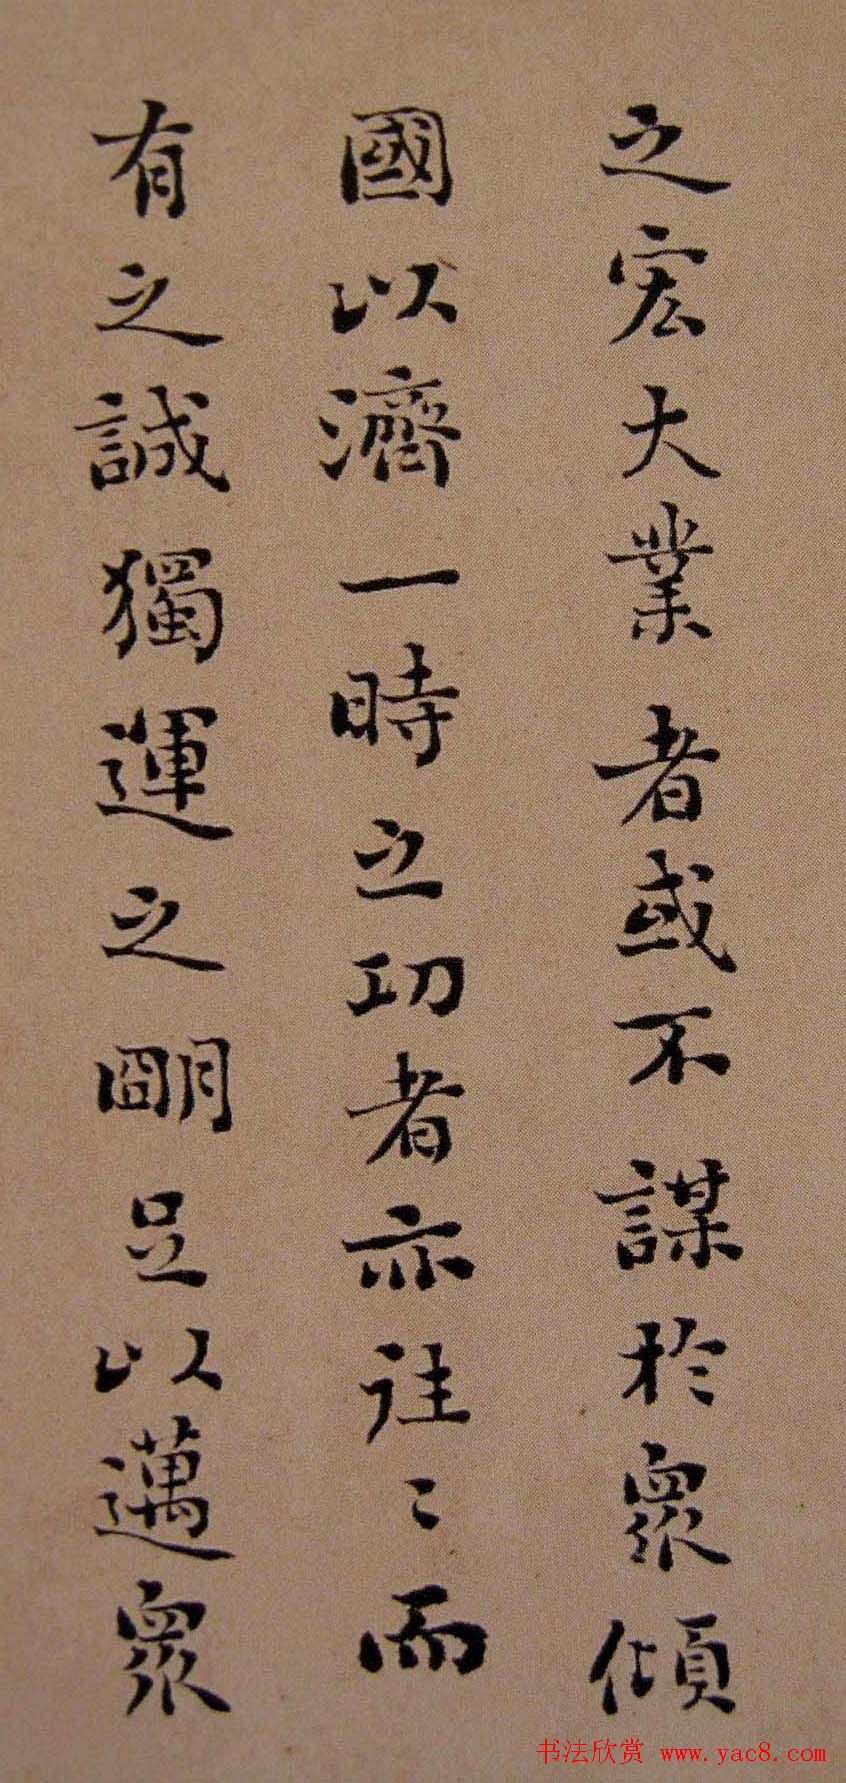 之宏大業者或不謀於眾傾
國以濟一時之功者亦往〻而
有之誠獨運之朙足以邁眾
书法欣赏 www.yac8.com